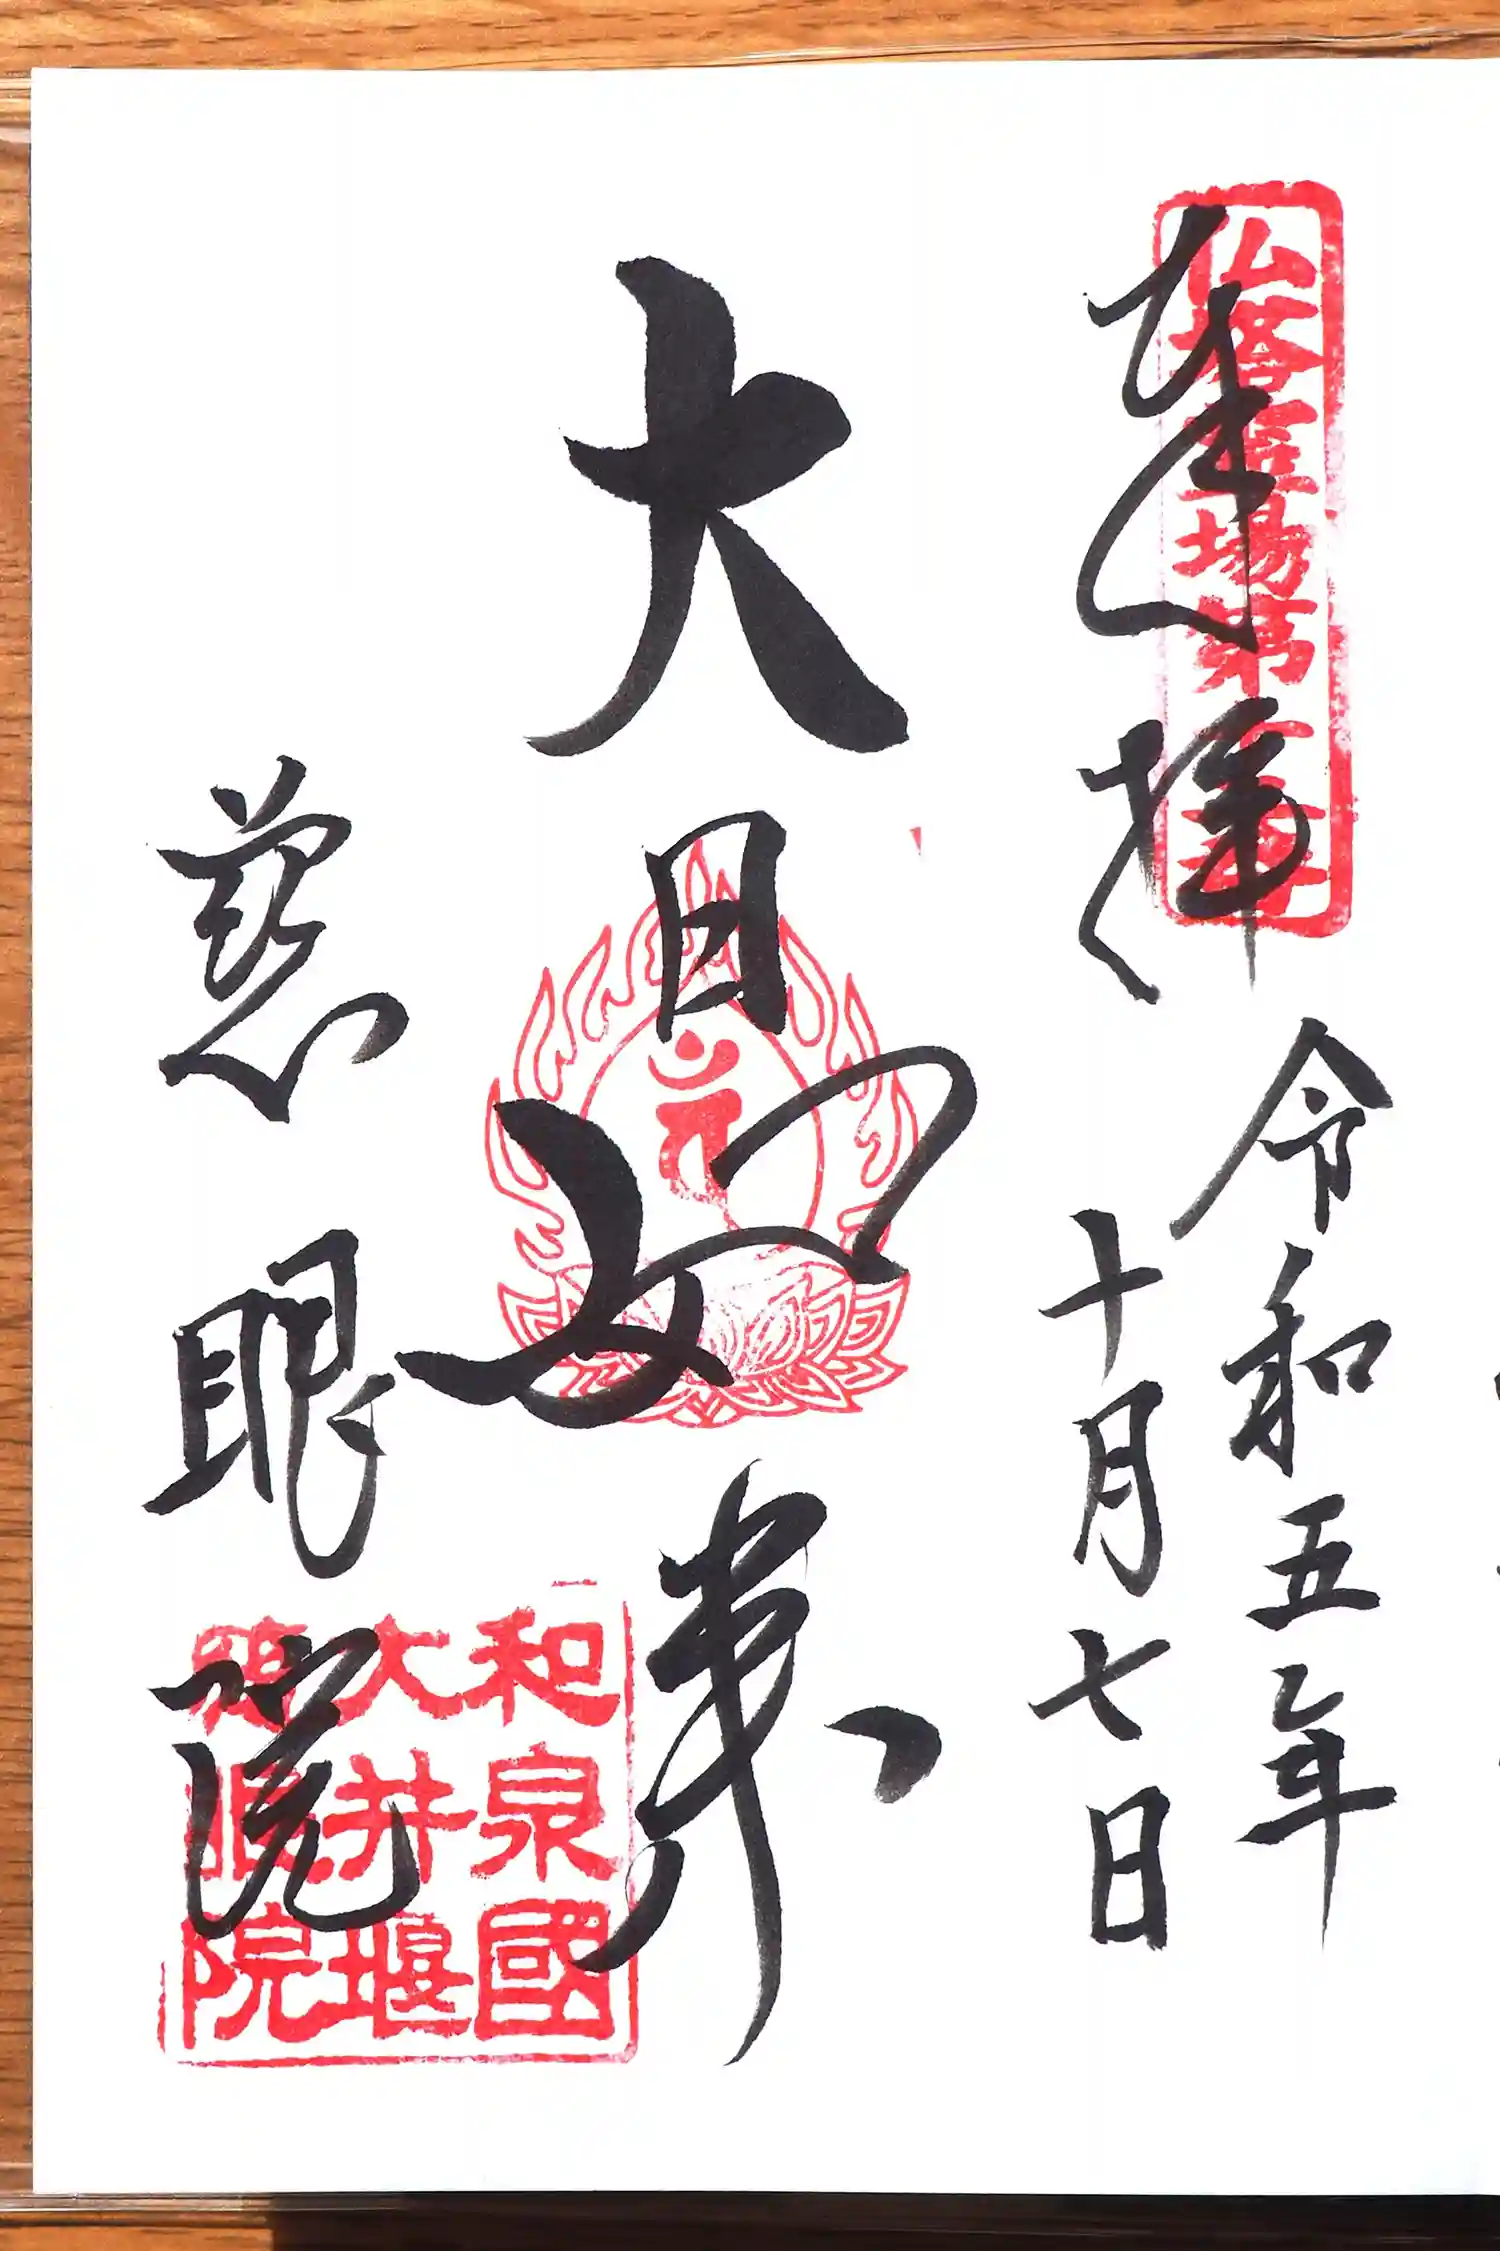 奉拝
仏塔霊場第二十三番
令和五年
十月七日
大日如来
慈眼院
和泉國
大井堰
慈眼院